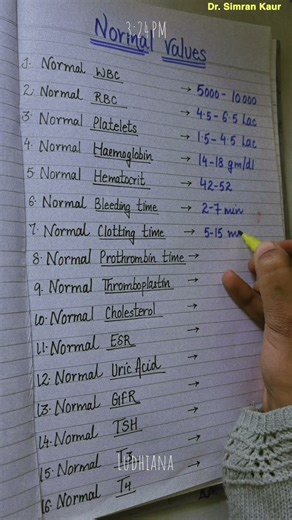 Dr. Simran Kaur
3:24 PM
Normal Values
1. Normal WBC → 5000 - 10,000
2. Normal RBC → 4.5 - 6.5 Lac
3. Normal Platelets → 1.5 - 4.5 Lac
4. Normal Haemoglobin → 14-18 gm/dl
5. Normal Hematocrit → 42-52
6. Normal Bleeding time → 2-7 min
7. Normal Clotting time → 5-15
8. Normal Prothrombin time →
9. Normal Thromboplastin →
10. Normal Cholesterol →
11. Normal ESR →
12. Normal Uric Acid →
13. Normal GFR →
14. Normal TSH →
LUDHIANA
15. Normal T3 →
16. Normal T4 →